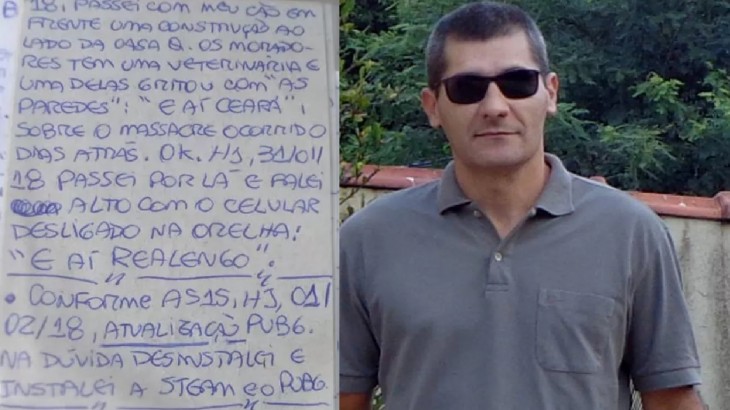 18, PASSEI COM MEU CÃO EM
FRENTE UMA CONSTRUÇÃO AO
LADO DA CASA 8. OS MORADO-
RES TEM UMA VETERINÁRIA E
UMA DELAS GRITOU COM "AS
PAREDES": "E AÍ CEARÁ",
SOBRE O MASSACRE OCORRIDO
DIAS ATRÁS. OK. HJ, 31/01/
18 PASSEI POR LÁ E FALEI
ALTO COM O CELULAR
DESLIGADO NA ORELHA:
"E AÍ REALENGO".
• CONFORME AS15, HJ, 01/
02/18, ATUALIZAÇÃO PUBG.
NA DÚVIDA DESINSTALEI E
INSTALEI A STEAM E O PUBG.